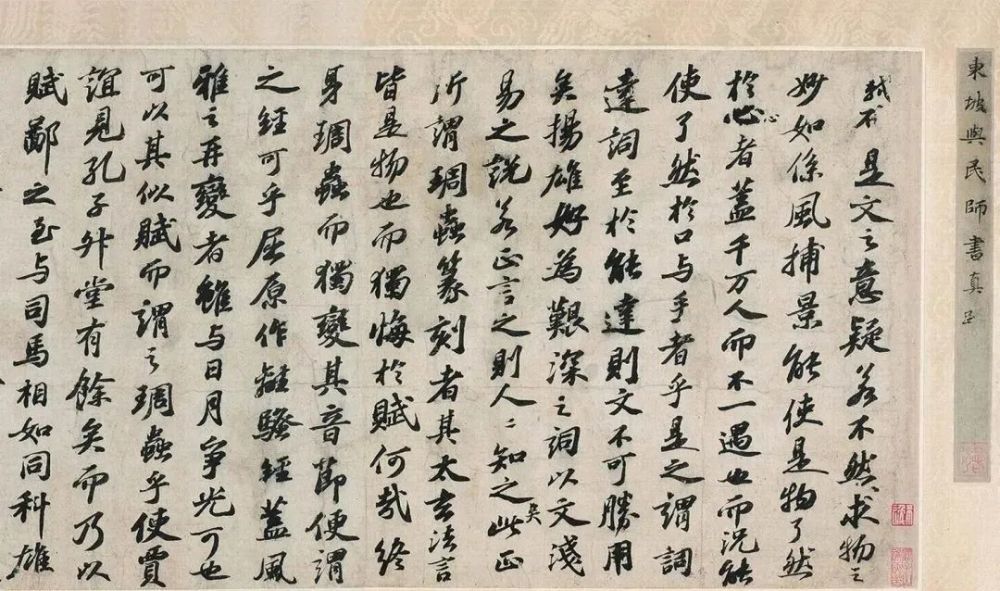 東坡與民師書真
是文之意疑若不然求物之
妙如係風捕景能使是物了然
於心者蓋千万人而不一遇也而況能
心
使了然於口与手者乎是之謂詞
達詞至於能達則文不可勝用
矣揚雄好為艱深之詞以文淺
易之說若正言之則人〻知之矣此正
所謂琱蟲篆刻者其太玄法言
皆是物也而獨悔於賦何哉終
身琱蟲而獨變其音節便謂
之經可乎屈原作離騷經蓋風
雅之再變者雖与日月争光可也
可以其似賦而謂之琱蟲乎使賈
誼見孔子升堂有餘矣而乃以
賦鄙之至与司馬相如同科雄